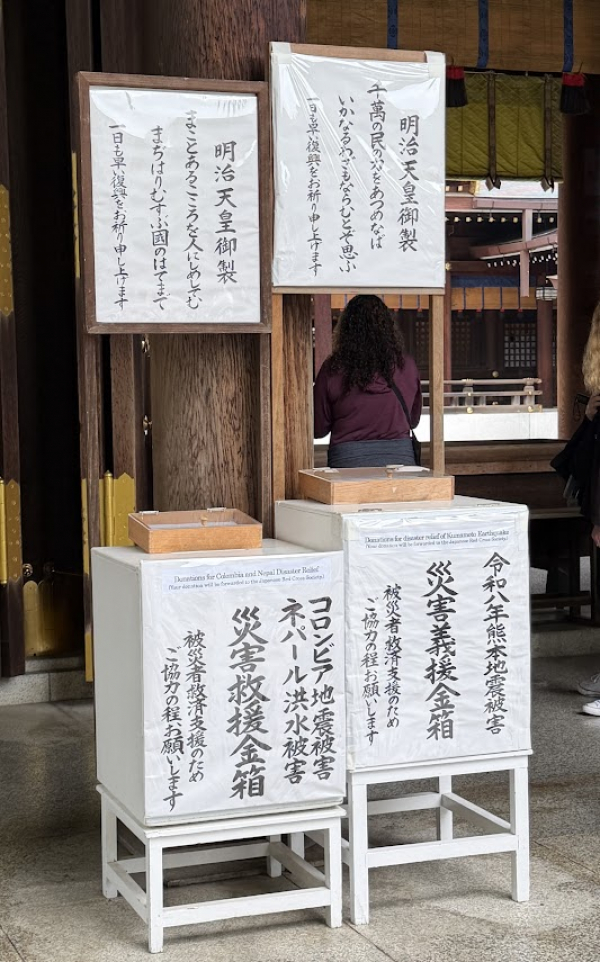 明治天皇御製
千萬の民の力をあつめなば
いかなるわざもならむとぞ思ふ
一日も早い復興をお祈り申し上げます
明治天皇御製
まことあるこころを人にしめしてむ
まぢはりむすぶ国のはてまで
一日も早い復興をお祈り申し上げます
Donations for disaster relief of Kumamoto Earthquake
(Your donation will be forwarded to the Japanese Red Cross Society)
令和八年熊本地震被害
災害義援金箱
被災者救済支援のため
ご協力の程お願いします
Donations for Colombia and Nepal Disaster Relief
(Your donation will be forwarded to the Japanese Red Cross Society)
コロンビア地震被害
ネパール洪水被害
災害救援金箱
被災者救済支援のため
ご協力の程お願いします